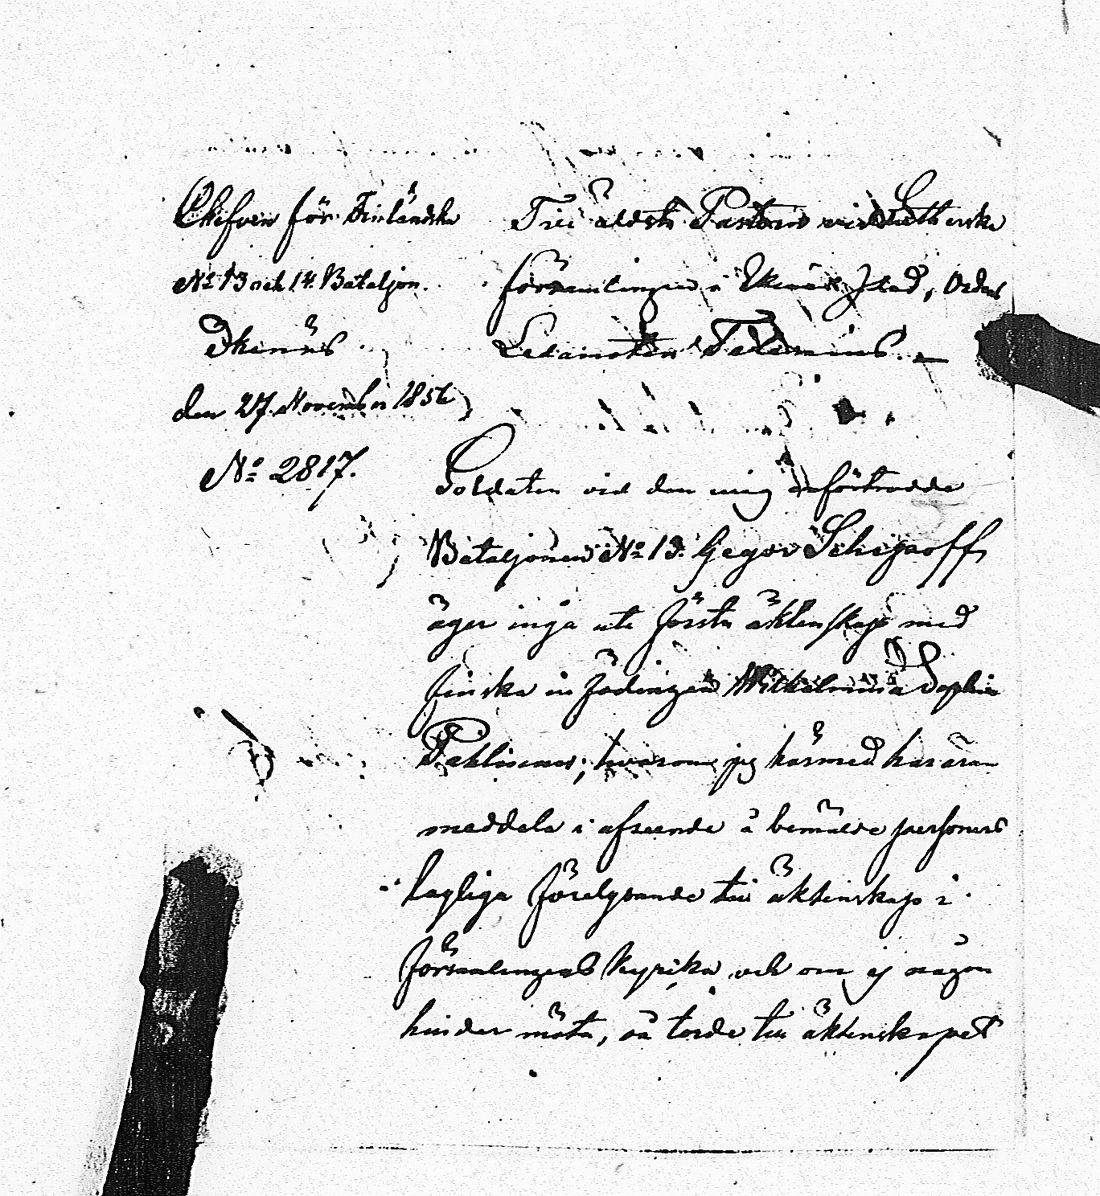 Chefven för Finländska
No 13 och 14 Bataljon.
Ekenäs
den 27 November 1856
No 2817.
Till äldste Pastorn vid Lutherska
församlingen i Ekenäs Stad, Ordens
Ledamoten
Soldaten vid den mig anförtrodda
Bataljonen No 13. Gegor
äger ingå uti första äktenskap med
finska Wilhelmina Sophia
hvarom jag härmed har äran
meddela i afseende å bemälde personers
lagliga förelysande till äktenskap i
församlingens kyrka och om ej någon
hinder möta, så torde till äktenskapet